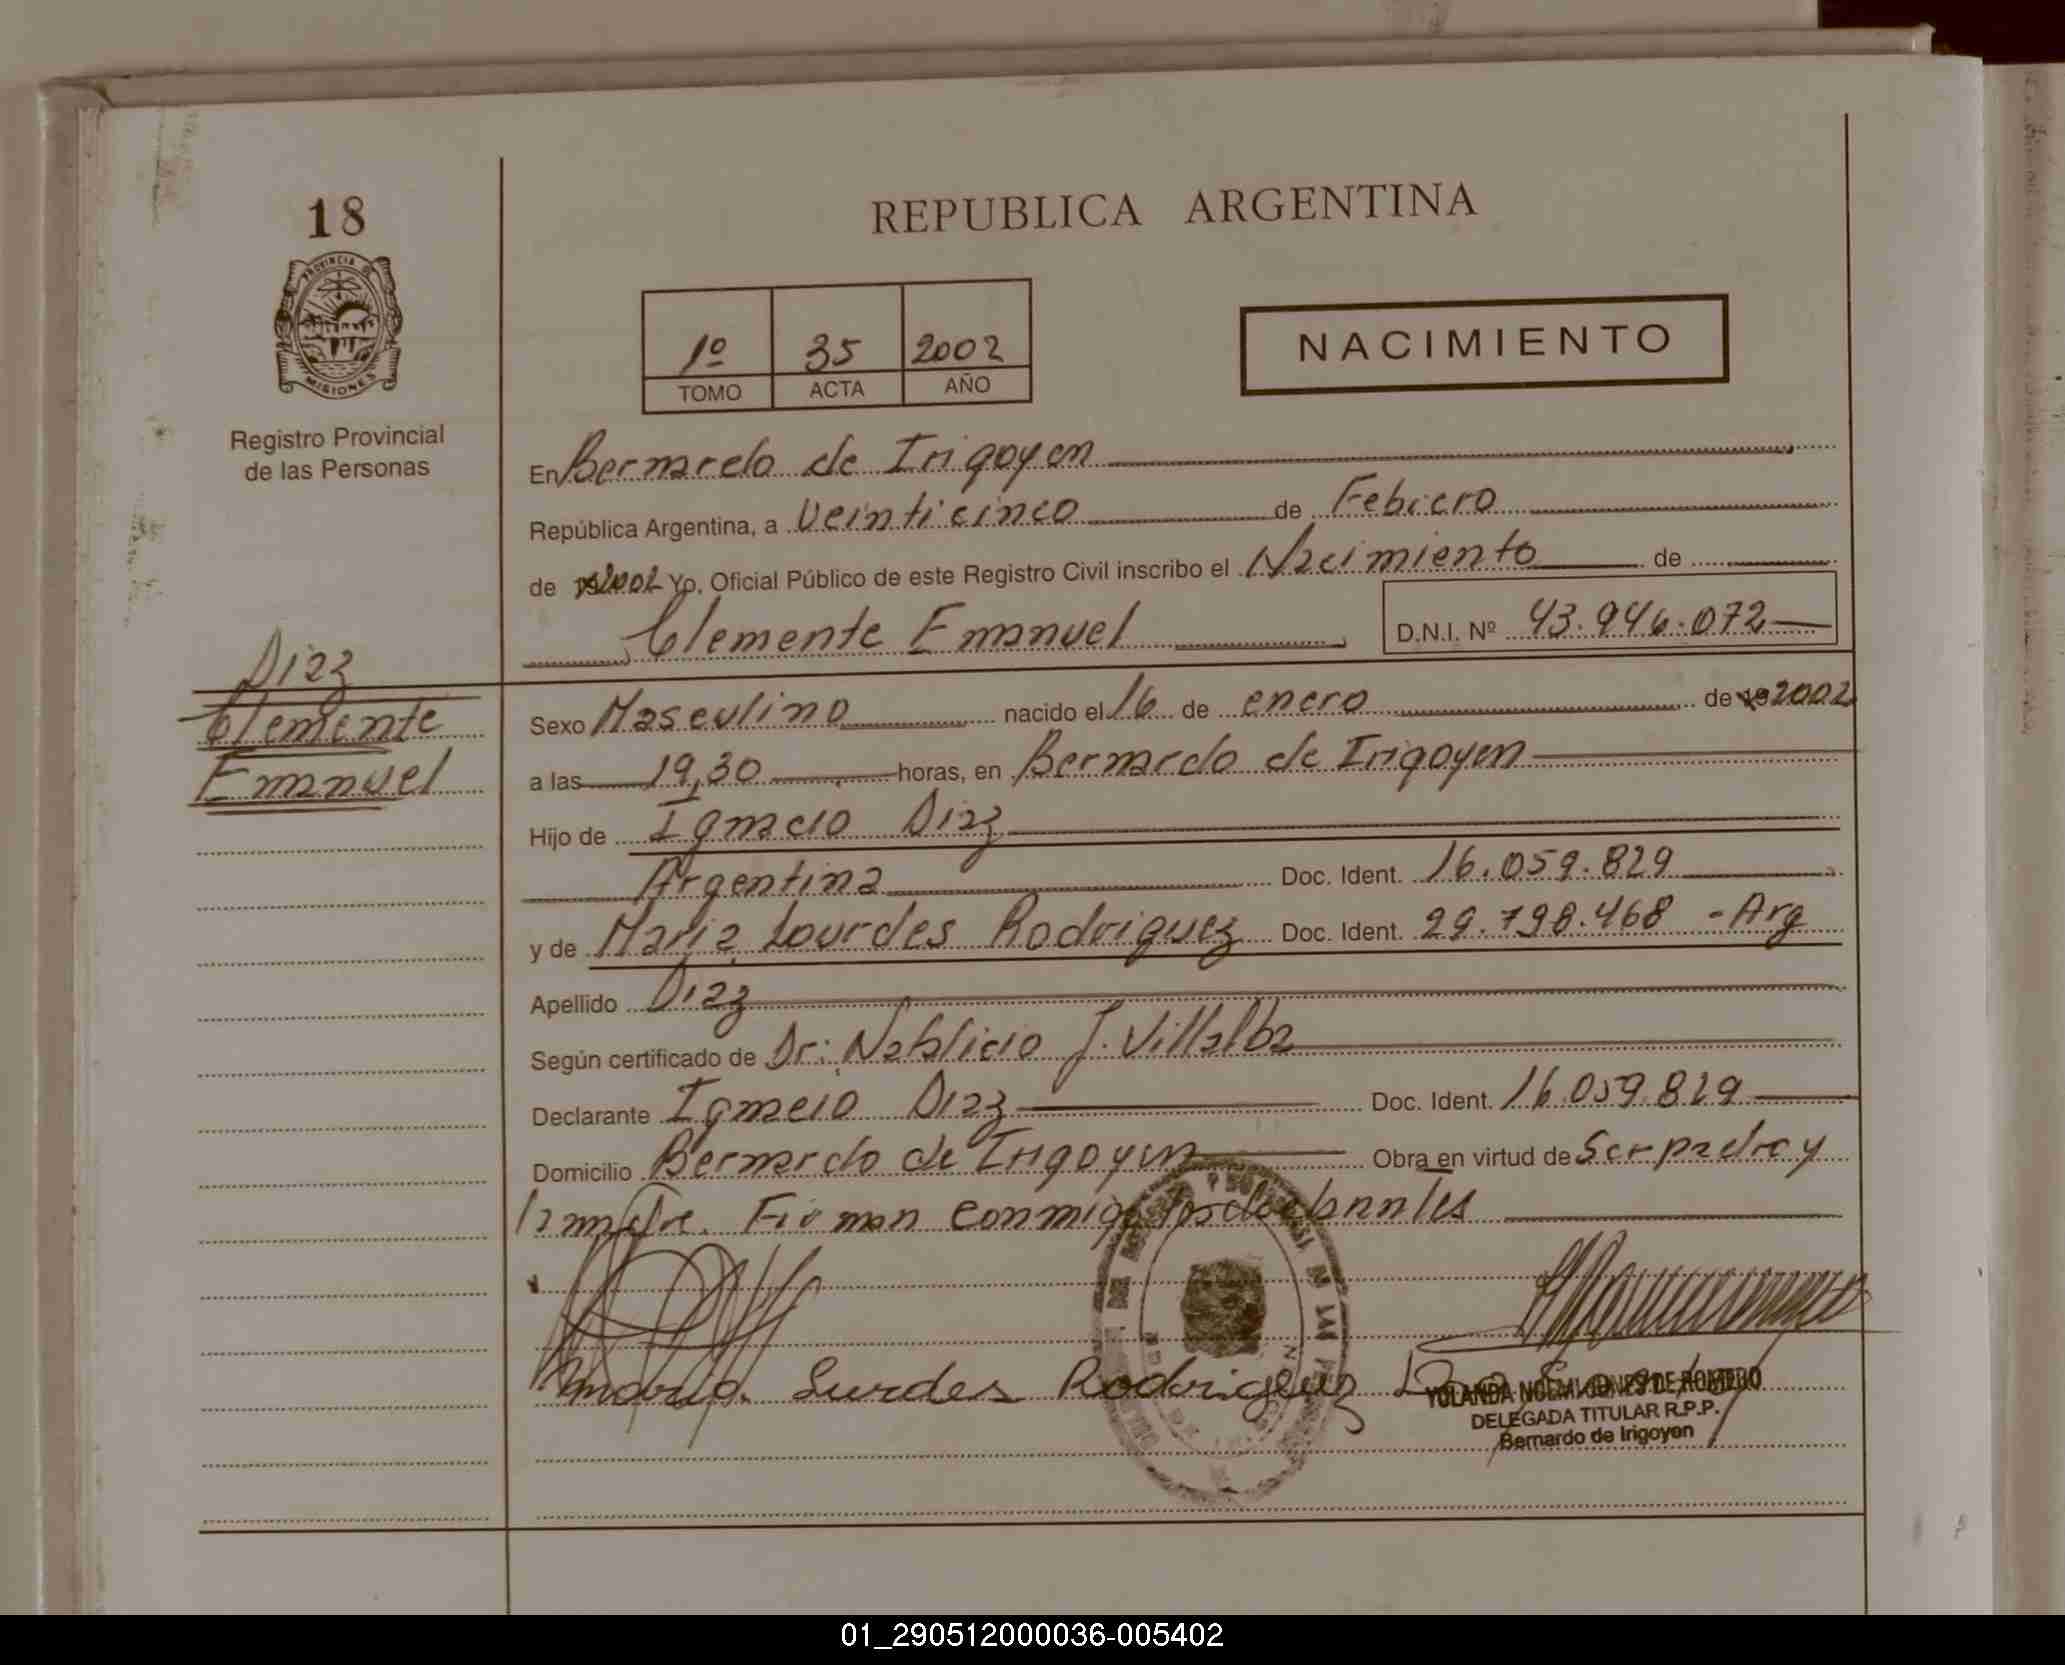 18
PROVINCIA DE
MISIONES
Registro Provincial
de las Personas
REPUBLICA ARGENTINA
1º 35 2002
TOMO ACTA AÑO
NACIMIENTO
En Bernardo de Irigoyen
República Argentina, a Veinticinco de Febrero
de 2002 Yo, Oficial Público de este Registro Civil inscribo el Nacimiento de
Clemente Emanuel D.N.I. Nº 43.946.072
Diaz
Clemente
Emanuel
Sexo Masculino nacido el 16 de enero de 19 2002
a las 19,30 horas, en Bernardo de Irigoyen
Hijo de Ignacio Diaz
Argentina Doc. Ident. 16.059.829
y de Maria Lourdes Rodriguez Doc. Ident. 29.798.468 - Arg
Apellido Diaz
Según certificado de Dr: Natalicio J. Villalba
Declarante Ignacio Diaz Doc. Ident. 16.059.829
Domicilio Bernardo de Irigoyen Obra en virtud de Ser padre y
la madre. Firman conmigo los declarantes
Maria Lurdes Rodriguez
YOLANDA NOEMI DE ROMERO
DELEGADA TITULAR R.P.P.
Bernardo de Irigoyen
01_290512000036-005402